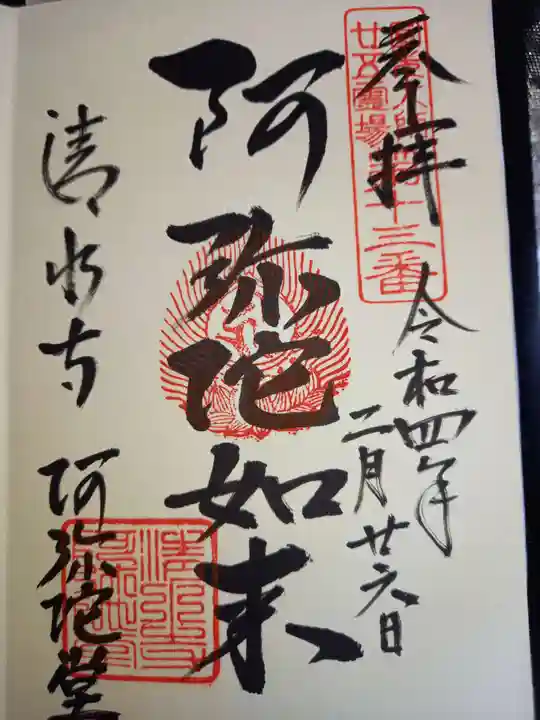 奉拝
廿五霊場第十三番
令和四年
二月廿六日
阿弥陀如来
清水寺
阿弥陀堂